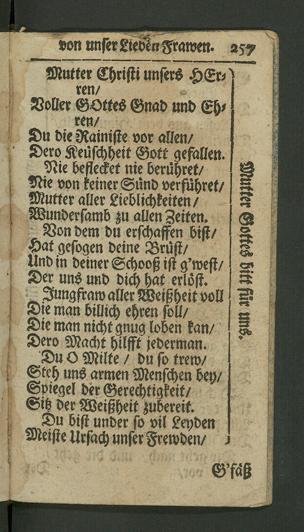 von unser Lieben Frawen. 257
Mutter Christi unsers HEr-
ren/
Voller GOttes Gnad und Eh-
ren/
Du die Rainiste vor allen/
Dero Keüschheit Gott gefallen.
Nie beflecket nie berühret/
Nie von keiner Sünd verführet/
Mutter aller Lieblichkeiten/
Wundersamb zu allen Zeiten.
Von dem du erschaffen bist/
Hat gesogen deine Brüst/
Und in deiner Schooß ist g'west/
Der uns und dich hat erlöst.
Jungfraw aller Weißheit voll
Die man billich ehren soll/
Die man nicht gnug loben kan/
Dero Macht hilfft jederman.
Du O Milte / du so trew/
Steh uns armen Menschen bey/
Spiegel der Gerechtigkeit/
Sitz der Weißheit zubereit.
Du bist under so vil Leyden
Meiste Ursach unser Frewden/
Mutter Gottes bitt für uns.
G'fäß